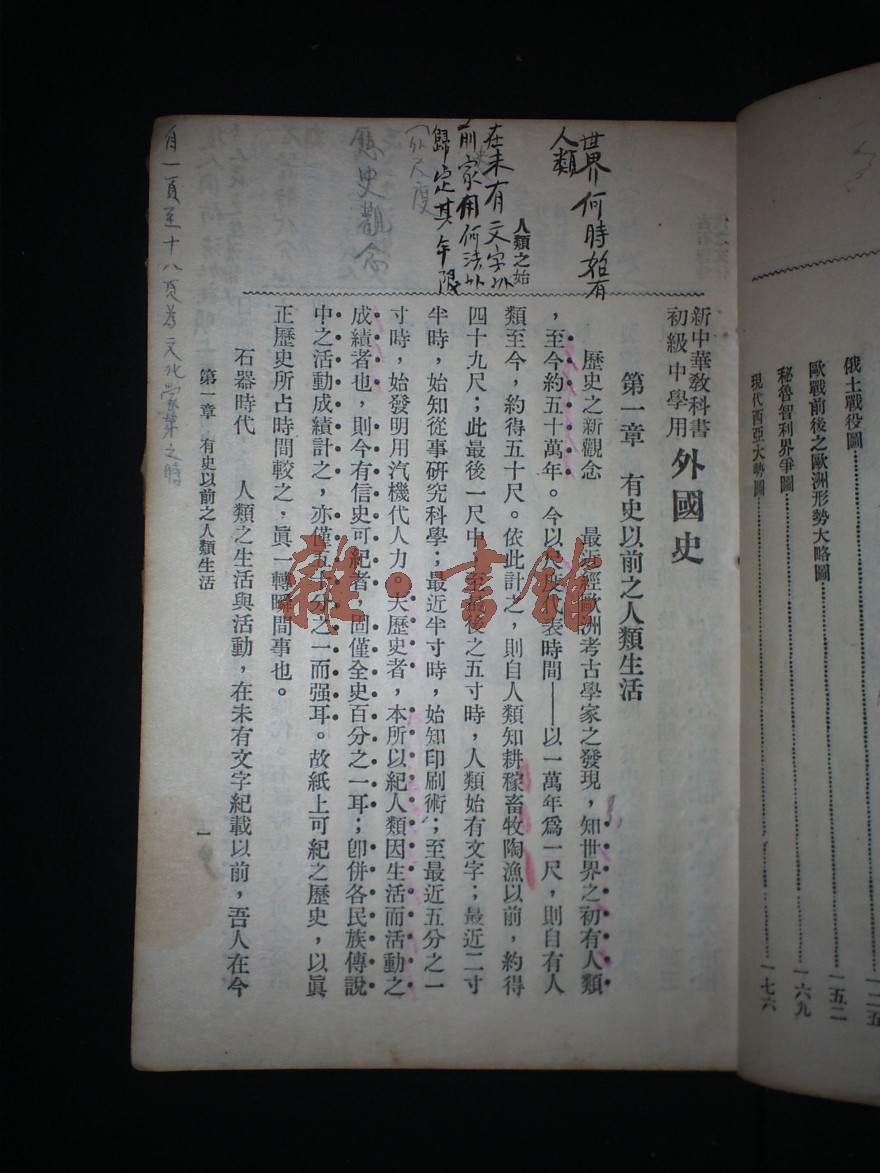 俄土戰役圖
歐戰前後之歐洲形勢大略圖……一五二
秘魯智利界爭圖……一六九
現代西亞大勢圖……一七六
世界何時始有
人類
人類之始
在未有文字以
前家用何法以
歸定其年限
以尺度
歷史觀念
自一頁至十八頁為文化蒙之時
新中華教科書
初級中學用
外國史
第一章 有史以前之人類生活
歷史之新觀念 最近經歐洲考古學家之發現,知世界之初有人類
,至今約五十萬年。今以尺度代表時間——以一萬年爲一尺,則自有人
類至今,約得五十尺。依此計之,則自人類知耕稼畜牧陶漁以前,約得
四十九尺;此最後一尺中,至最後之五寸時,人類始有文字;最近二寸
半時,始知從事研究科學;最近半寸時,始知印刷術;至最近五分之一
寸時,始發明用汽機代人力。夫歷史者,本所以紀人類因生活而活動之
成績者也,則今有信史可紀者,固僅全史百分之一耳;卽併各民族傳說
中之活動成績計之,亦僅五十分之一而强耳。故紙上可紀之歷史,以眞
正歷史所占時間較之,眞一轉瞬間事也。
石器時代 人類之生活與活動,在未有文字紀載以前,吾人在今
第一章 有史以前之人類生活
一
雜·書館